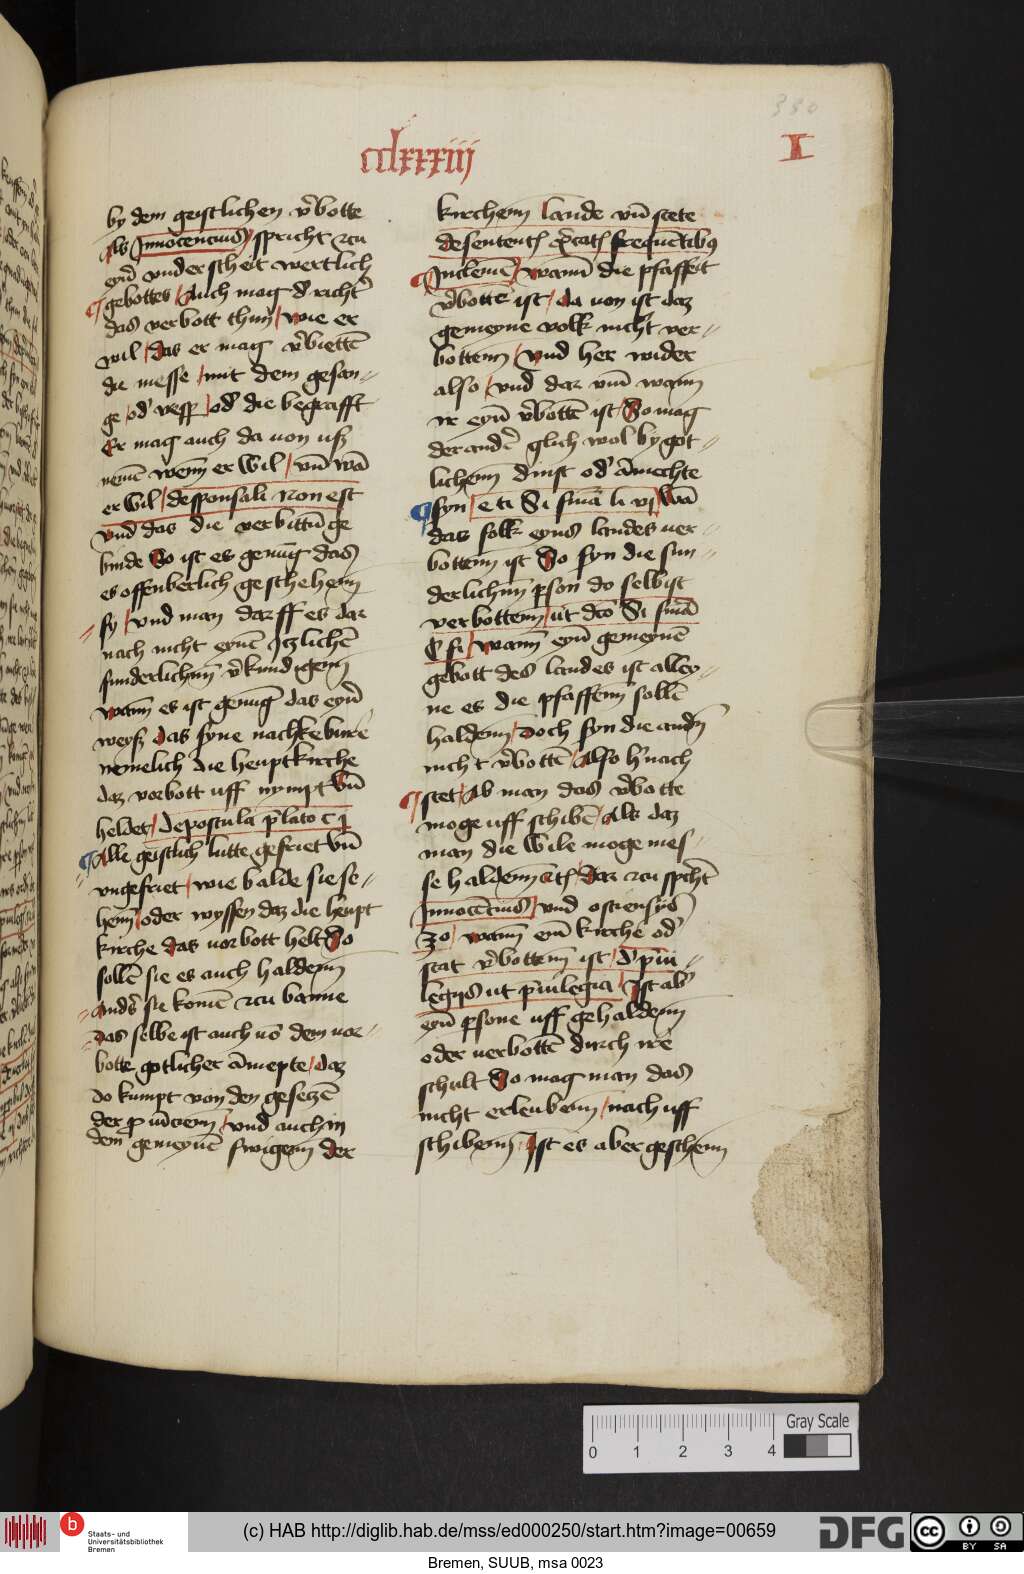 cclxxxiij
I
330
by dem geistlichen v̾botte
Als Innocencius spricht zcu
eyn̄ vnderscheit wertlich
gebottes Auch mag d̾ richt̾
das verbott thun̄ wie er
wil das er mag v̾biettē
die messe mit dem gesan-
ge od̾ vesp̄ od̾ die begrafft
Er mag auch da von vsz
nemē wenn̄ er wil vn̄ wā
er wil desponsali non est
vnd das die verbittūge
binde So ist es genūg das
es offenberlich geschehenn̄
sy vnd man darff es dar
nach nicht eynē Itzlichē
sunderlichnn̄ v̾kundigenn̄
wann̄ es ist genūg das eyn̄
weysz das syne nachkebure
nemelich die heuptkirche
daz vorbott uff nympt vn̄
heldet depostula p̄lato c j
Alle geistlich lutte gefriet vn̄
vngefriet wie balde sie se-
henn̄ oder wyssen daz die heupt
kirche das vorbott helt So
sollē sie es auch haldenn̄
Ands̾ sie komē zcu banne
das selbe ist auch vō dem vor-
botte gotlicher āmepte daz
do kumpt von den gesetzē
der p vīcienn̄ vnd auch in
dem gemeynē swigenn̄ der
kirchenn̄ lande vn̄ stete
desentent excōicatꝭ frequētibꝯ
Inclemē wann̄ die pfaffeit
v̾botte ist da von ist daz
gemeyne volk nicht ver-
bottenn̄ vnd her wider
also vnd dar vm̄ wann̄
ir eyn̄ v̾bottē ist So mag
der and̾ glich wol by got-
lichenn̄ dinst od̾ āmechte
syn etī Si sniā li vj Wā
das folk eyns landes ver-
bottenn̄ ist So syn die sun-
derlichnn̄ p̄son do selbist
verbottenn̄ ut dco Si sniā
C si wann̄ eyn̄ gemeynē
gebott des landes ist alley-
ne es die pfaffenn̄ sollē
haldenn̄ doch syn die andn̄
nicht v̾bottē Also h̾nach
stet Ab man das v̾botte
moge uff schibē Als daz
man die wile moge mes-
se haldenn̄ etc̄ daz zcu spcht̾
Innocēcius vnd ostiensys
zo wann̄ em̄ kirche od̾
stat v̾bottenn̄ ist d̾ p̄iui-
legijs ut p̄iuilegia Ist ab̾
eyn̄ p̄sone uff gehaldenn̄
oder verbottē durch ire
schult So mag man das
nicht erleubenn̄ nach uff
schibenn̄ Ist es aber geschenn̄
Gray Scale
0 1 2 3 4
b
Staats- und
Universitätsbibliothek
Bremen
(c) HAB http://diglib.hab.de/mss/ed000250/start.htm?image=00659
DFG
cc
BY SA
Bremen, SUUB, msa 0023